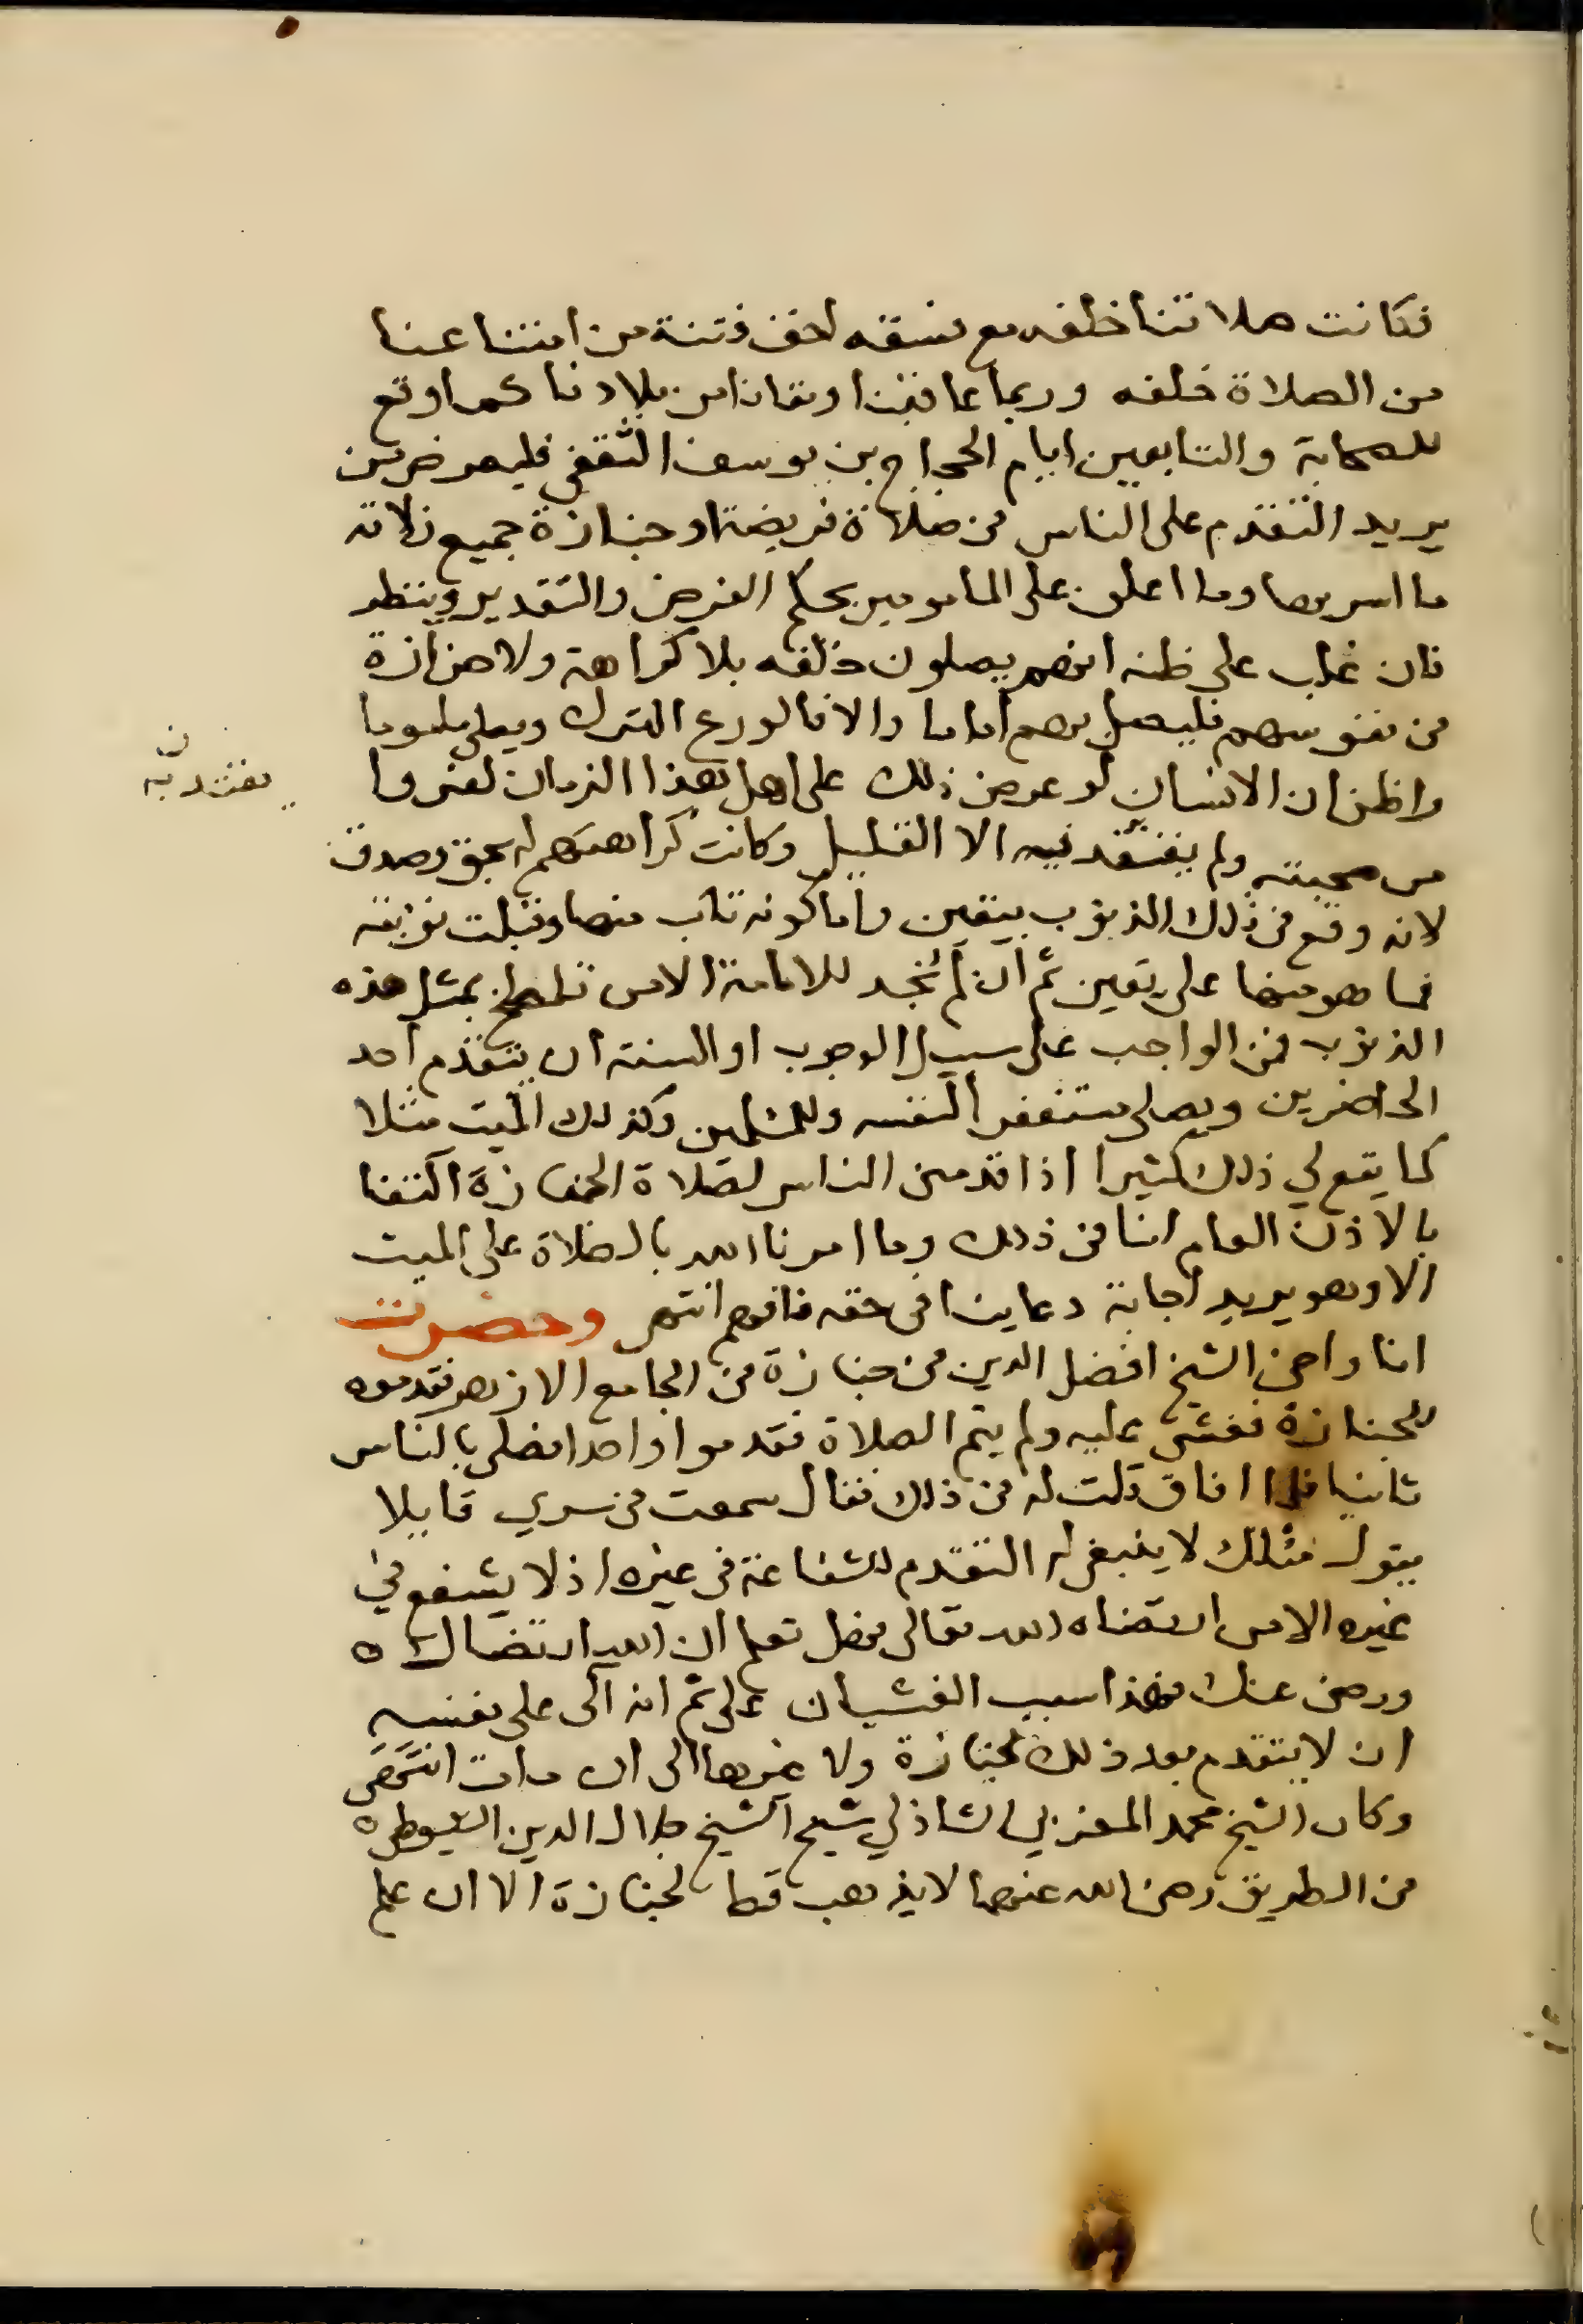 فكانت صلاتنا خلفه مع فسقه اخف فتنة من امتناعنا
من الصلاة خلفه وربما عاقبنا ونفانا من بلادنا كما وقع
للصحابة والتابعين ايام الحجاج بن يوسف الثقفي فليعرض من
يريد التقدم على الناس في صلاة فريضة او جنازة جميع زلاته
ما اسر بها وما اعلن على المامومين بحكم الفرض والتقدير وينظر
فان غلب على ظنه انهم يصلون خلفه بلا كراهة ولا حزازة
في نفوسهم فليصل بهم اماما والا فالورع الترك ويصلي ماموما
واظن ان الانسان لو عرض ذلك على اهل هذا الزمان لنفروا
من صحبته ولم يعتقد فيه الا القليل وكانت كراهتهم له بحق وصدق
لانه وقع في ذلك الذنوب بيقين واما كونه تاب منها وقبلت توبته
فما هو منها على يقين ثم ان لم نجد للامامة الا من تلطخ بمثل هذه
الذنوب فمن الواجب على سبيل الوجوب او السنة ان يتقدم احد
الحاضرين ويصلي مستغفرا لنفسه وللمسلمين وكذلك الميت مثلا
كما يقع لي ذلك كثيرا اذا قدمني الناس لصلاة الجنازة اكتفا
بالاذن العام لنا في ذلك وما امرنا الله بالصلاة على الميت
الا وهو يريد اجابة دعاينا في حقه فافهم انتهى وحضرت
انا واخي الشيخ افضل الدين في جنازة في الجامع الازهر فقدموه
للجنازة فغشي عليه ولم يتم الصلاة فقدموا واحدا فصلى بالناس
ثانيا فلما افاق قلت له في ذلك فقال سمعت في سري قايلا
يقول مثلك لا ينبغي له التقدم للشفاعة في غيره اذ لا يشفع في
غيره الا من ارتضاه الله تعالى فهل تعلم ان الله ارتضاك ه
ورضي عنك فهذا سبب الغشيان علي ثم انه آلى على نفسه
ان لا يتقدم بعد ذلك لجنازة ولا غيرها الى ان مات انتهى
وكان الشيخ محمد المغربي الشاذلي شيخ الشيخ جلال الدين السيوطي ه
في الطريق رضي الله عنهما لا يذهب قط لجنازة الا ان علم